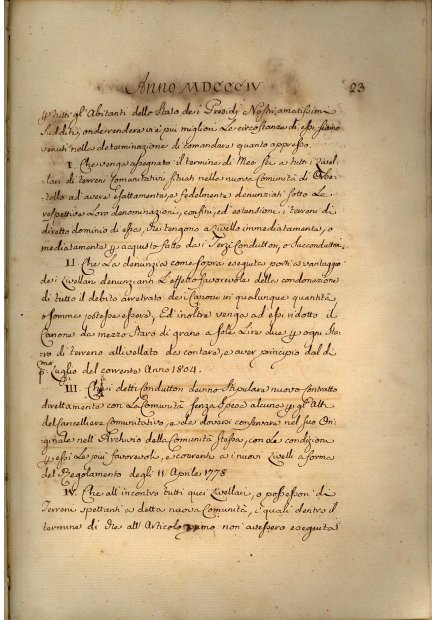 Anno MDCCCIV 23
ꝑ tutti gl'Abitanti dello Stato dei Presidj Nostri amatissimi
Sudditi, onde rendere vie più migliori Le circostanze di essi siamo
venuti nella determinazione di comandare quanto appresso.
I. Che venga assegnato il termine di Mesi sei a tutti i Livel-
lari di terreni Comunitativi situati nella nuova Comunità di Orbe-
tello ad avere esattamente, e fedelmente denunziati sotto Le
respettive Loro denominazioni, confini, ed estensione, i terreni di
diretto dominio di essa, che tengono a Livello immediatamente, o
mediatamente ꝑ acquisto fatto dei Terzi Conduttori, o Succonduttori.
II. Che La denunzia come sopra eseguita porti a vantaggio
dei Livellari denunzianti L'effetto favorevole della condonazione
di tutto il debito arretrato dei Canoni in qualunque quantità,
o somma potesse essere, Ed inoltre venga ad essi ridotto il
Canone da mezzo Staro di grano a sole Lire due ꝑ ogni Sta-
ro di terreno allivellato da contare, e aver principio dal dì
pmo Luglio del corrente Anno 1804.
III. Che i detti Conduttori devino Stipulare nuovo Contratto
direttamente con La Comunità senza spesa alcuna ꝑ gl'Atti
del Cancelliere Comunitativo, e da doversi conservare nel suo Ori-
ginale nell'Archivio della Comunità stessa, con Le condizioni
ꝑ essi Le più favorevoli, e coerenti ai nuovi Livelli a forma
del Regolamento degli 11. Aprile 1778
IV. Che all'incontro tutti quei Livellari, o possessori di
Terreni spettanti a detta nuova Comunità, i quali dentro il
termine di che all'Articolo primo non avessero eseguita